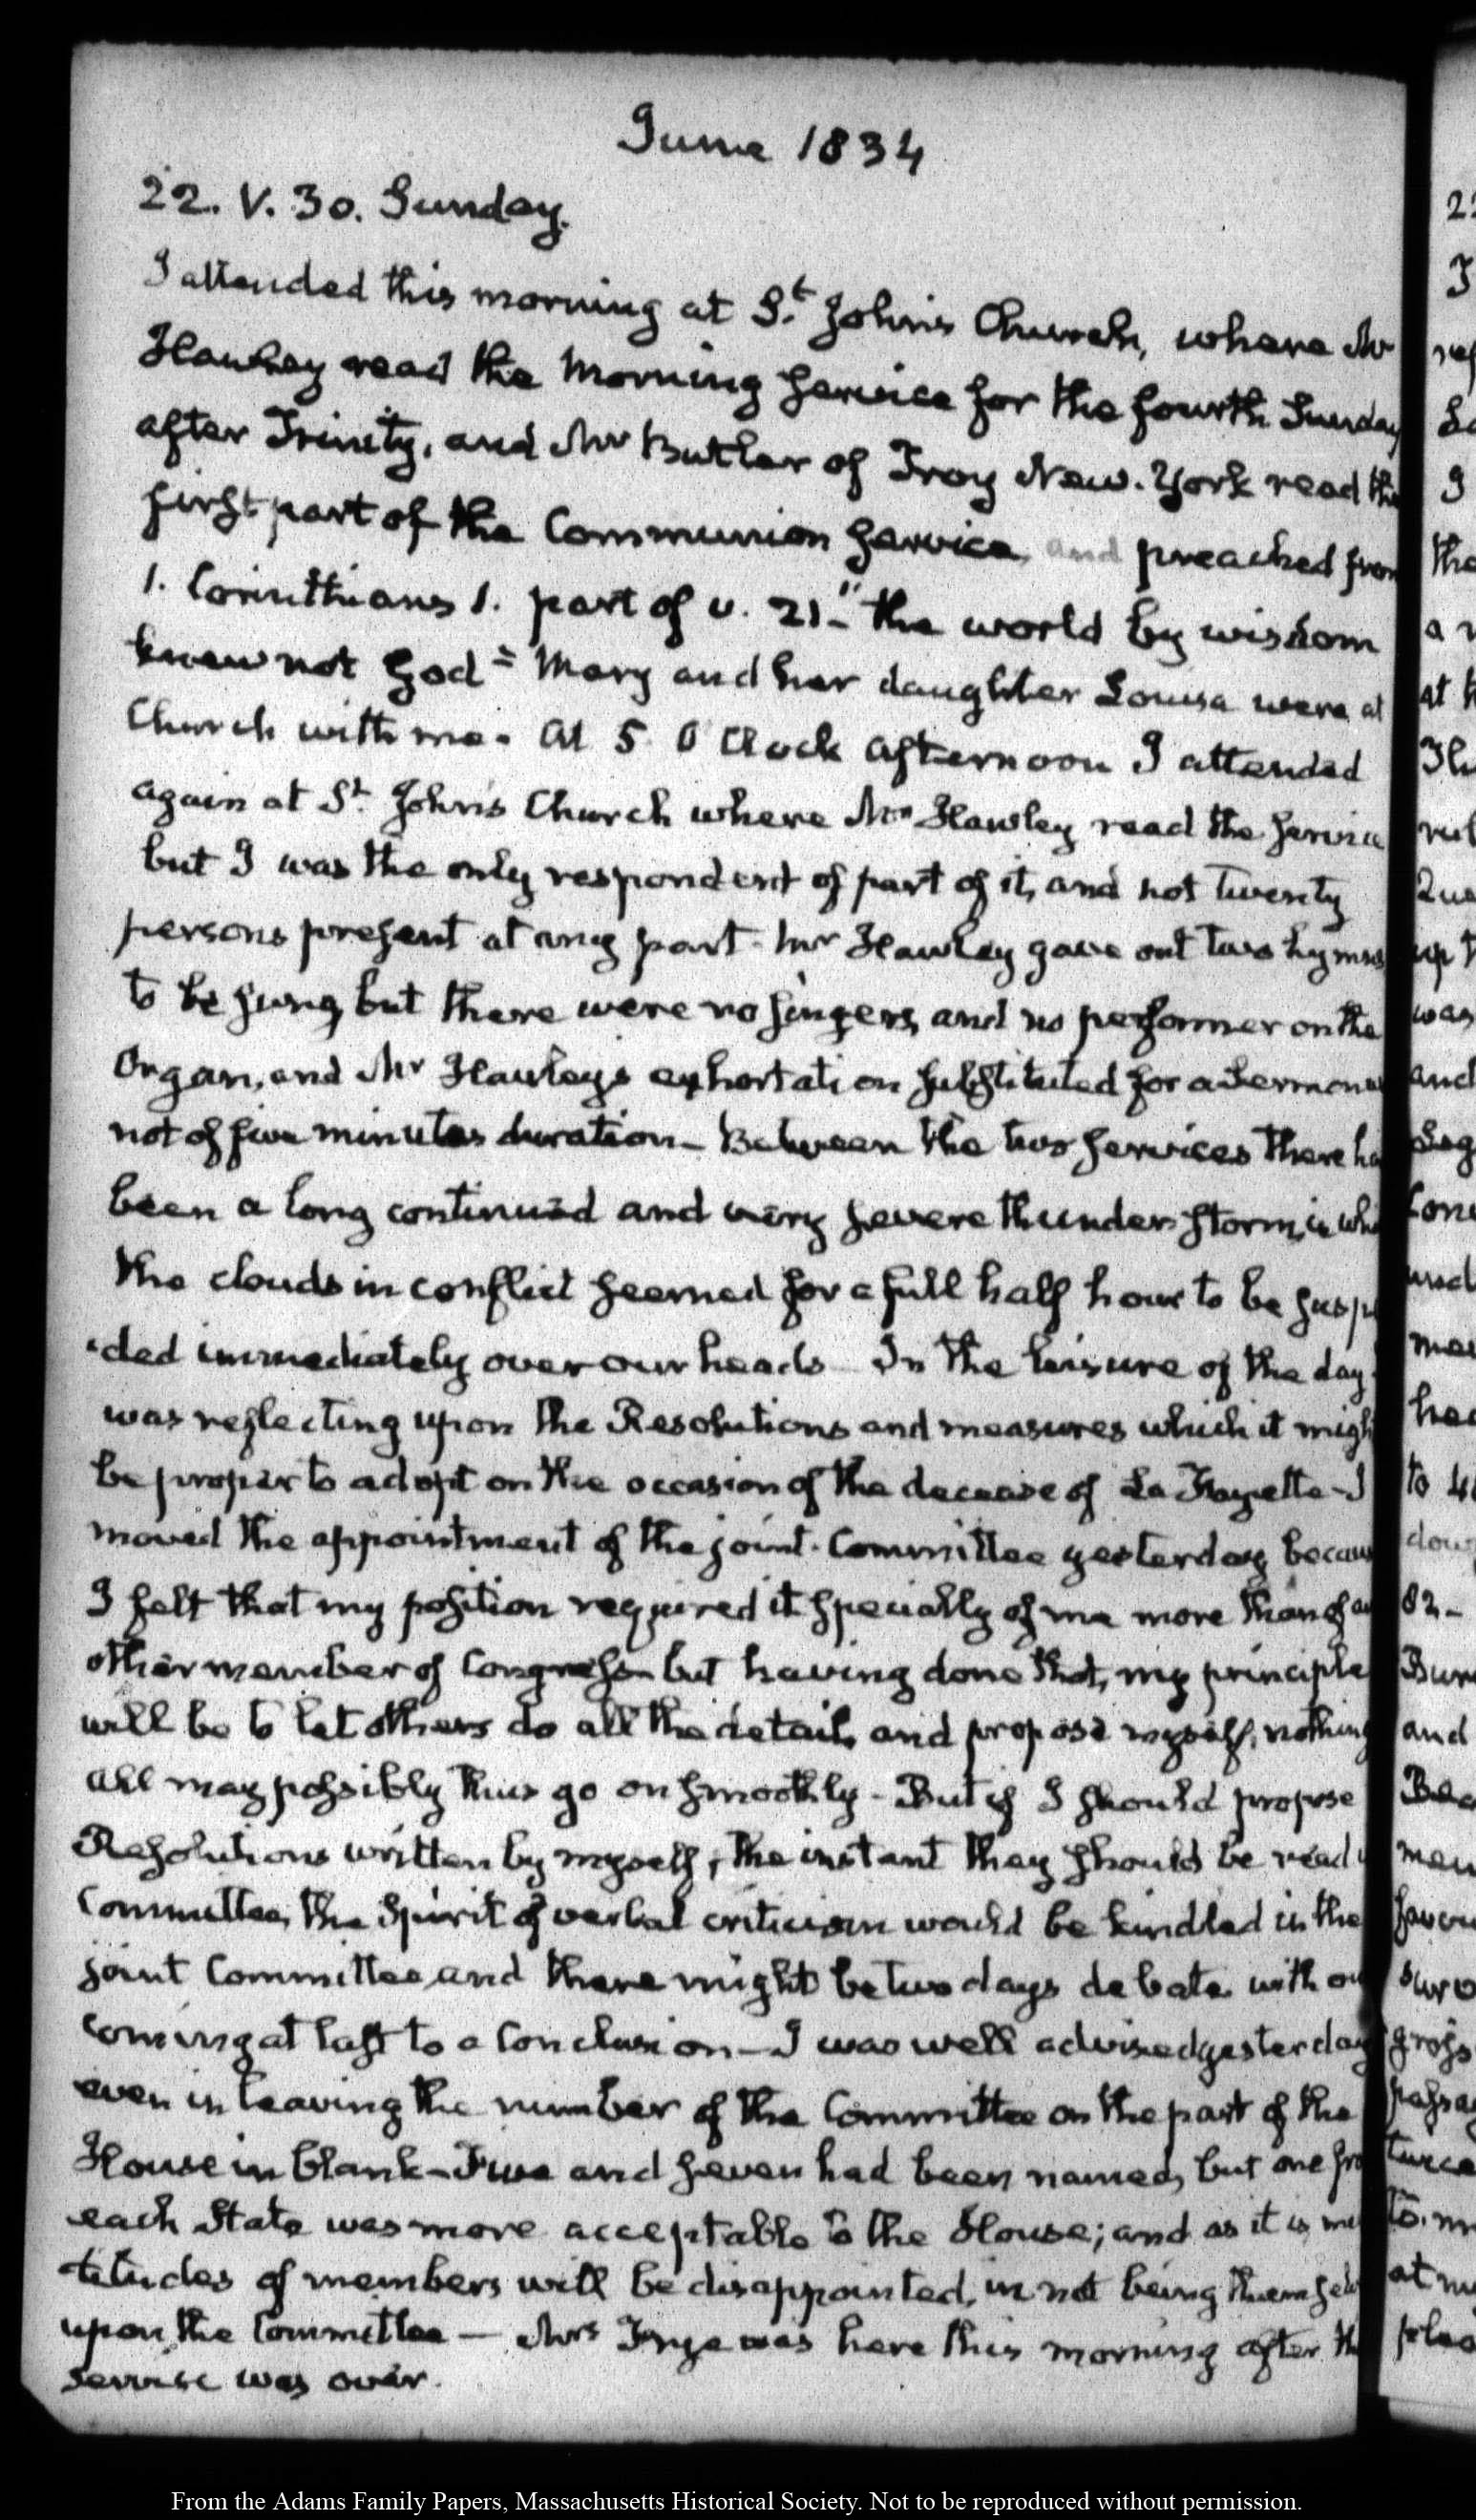 June 1834
22. V. 30. Sunday.
I attended this morning at St. John's Church, where Mr
Hawley read the Morning service for the fourth Sunday
after Trinity, and Mr Butler of Troy New-York read the
first part of the Communion service, and preached from
1. Corinthians 1. part of v. 21. "the world by wisdom
knew not God" Mary and her daughter Louisa were at
Church with me. At 5 O'Clock afternoon I attended
again at St. John's Church where Mr Hawley read the service
but I was the only respondent of part of it, and not twenty
persons present at any part. Mr Hawley gave out two hymns
to be sung, but there were no singers, and no performer on the
Organ, and Mr Hawley's exhortation substituted for a Sermon was
not of five minutes duration— Between the two services there ha
been a long continued and very severe thunder-storm, in whi
the clouds in conflict seemed for a full half hour to be susp
ded immediately over our heads— In the leisure of the day
was reflecting upon the Resolutions and measures which it migh
be proper to adopt on the occasion of the decease of La Fayette— I
moved the appointment of the joint Committee yesterday becau
I felt that my position required it specially of me more than of a
other member of Congress— but having done that, my principle
will be to let others do all the detail, and propose myself, nothing
all may possibly thus go on smoothly— But if I should propose
Resolutions written by myself, the instant they should be read i
Committee, the Spirit of verbal criticism would be kindled in the
joint Committee, and there might be two days debate with ou
coming at last to a Conclusion— I was well advised yesterday
even in leaving the number of the Committee on the part of the
House in blank— Five and seven had been named, but one fro
each State was more acceptable to the House; and as it is mu
titudes of members will be disappointed, in not being themselv
upon the Committee— Mrs Frye was here this morning after th
service was over.
From the Adams Family Papers, Massachusetts Historical Society. Not to be reproduced without permission.